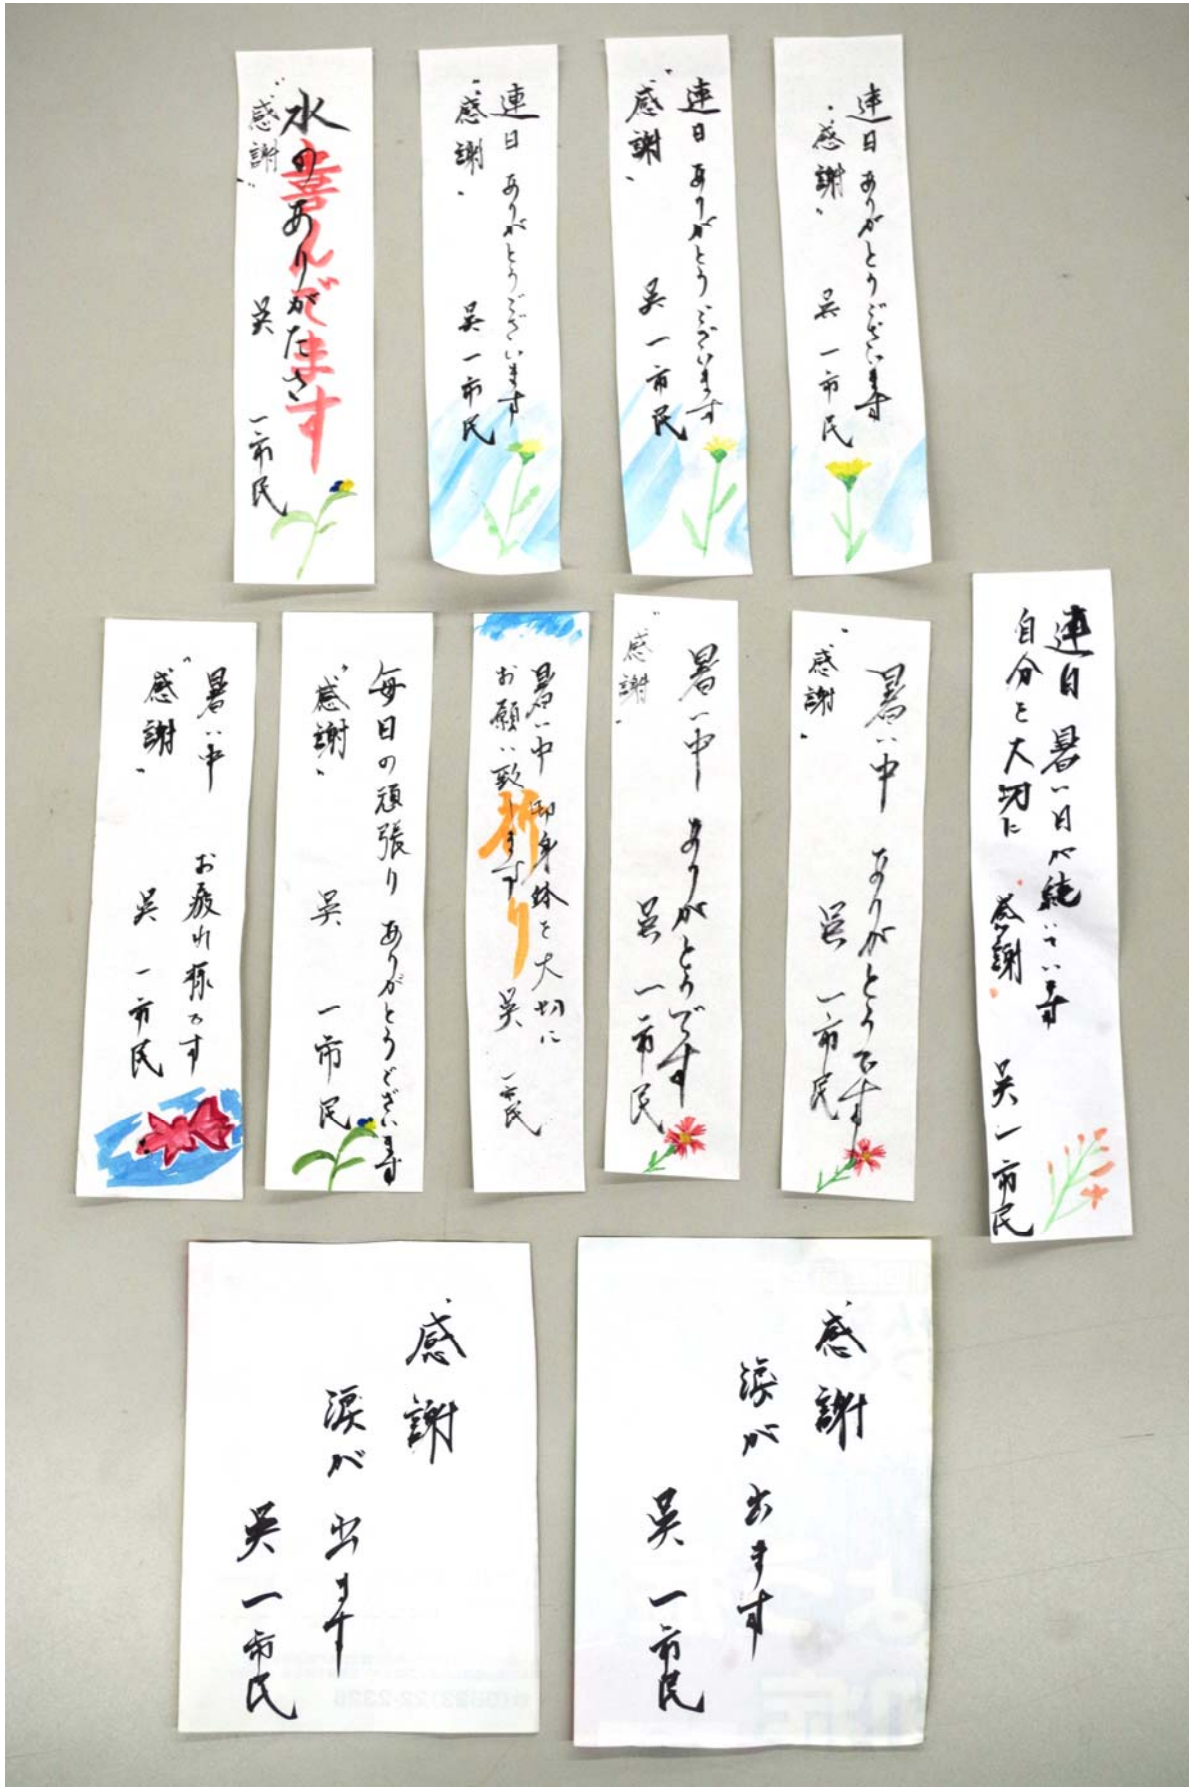 水のありがたさ
喜んでます
"感謝"
呉 一市民
連日 ありがとうございます
"感謝"
呉 一市民
連日 ありがとうございます
"感謝"
呉 一市民
連日 ありがとうございます
"感謝"
呉 一市民
暑い中 お疲れ様です
"感謝"
呉 一市民
毎日の頑張り ありがとうございます
"感謝"
呉 一市民
暑い中 御身体を大切に
お願い致します
祈り
呉 一市民
暑い中 ありがとうです
"感謝"
呉 一市民
暑い中 ありがとうです
"感謝"
呉 一市民
連日 暑い日が続いています
自分を大切に
"感謝"
呉 一市民
"感謝
涙が出ます
呉 一市民
"感謝
涙が出ます
呉 一市民